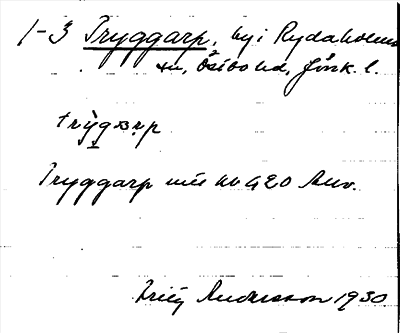 1-3 Tryggarp, by i Rydaholms
sn, Östbo hd, Jönk. l.
trỳgarp
Tryggarp
Fritz Andersson 1930.